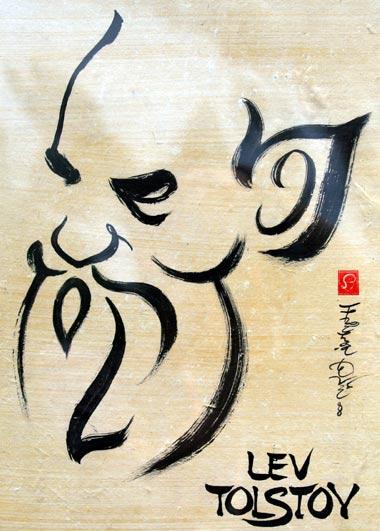 LEV
TOLSTOY